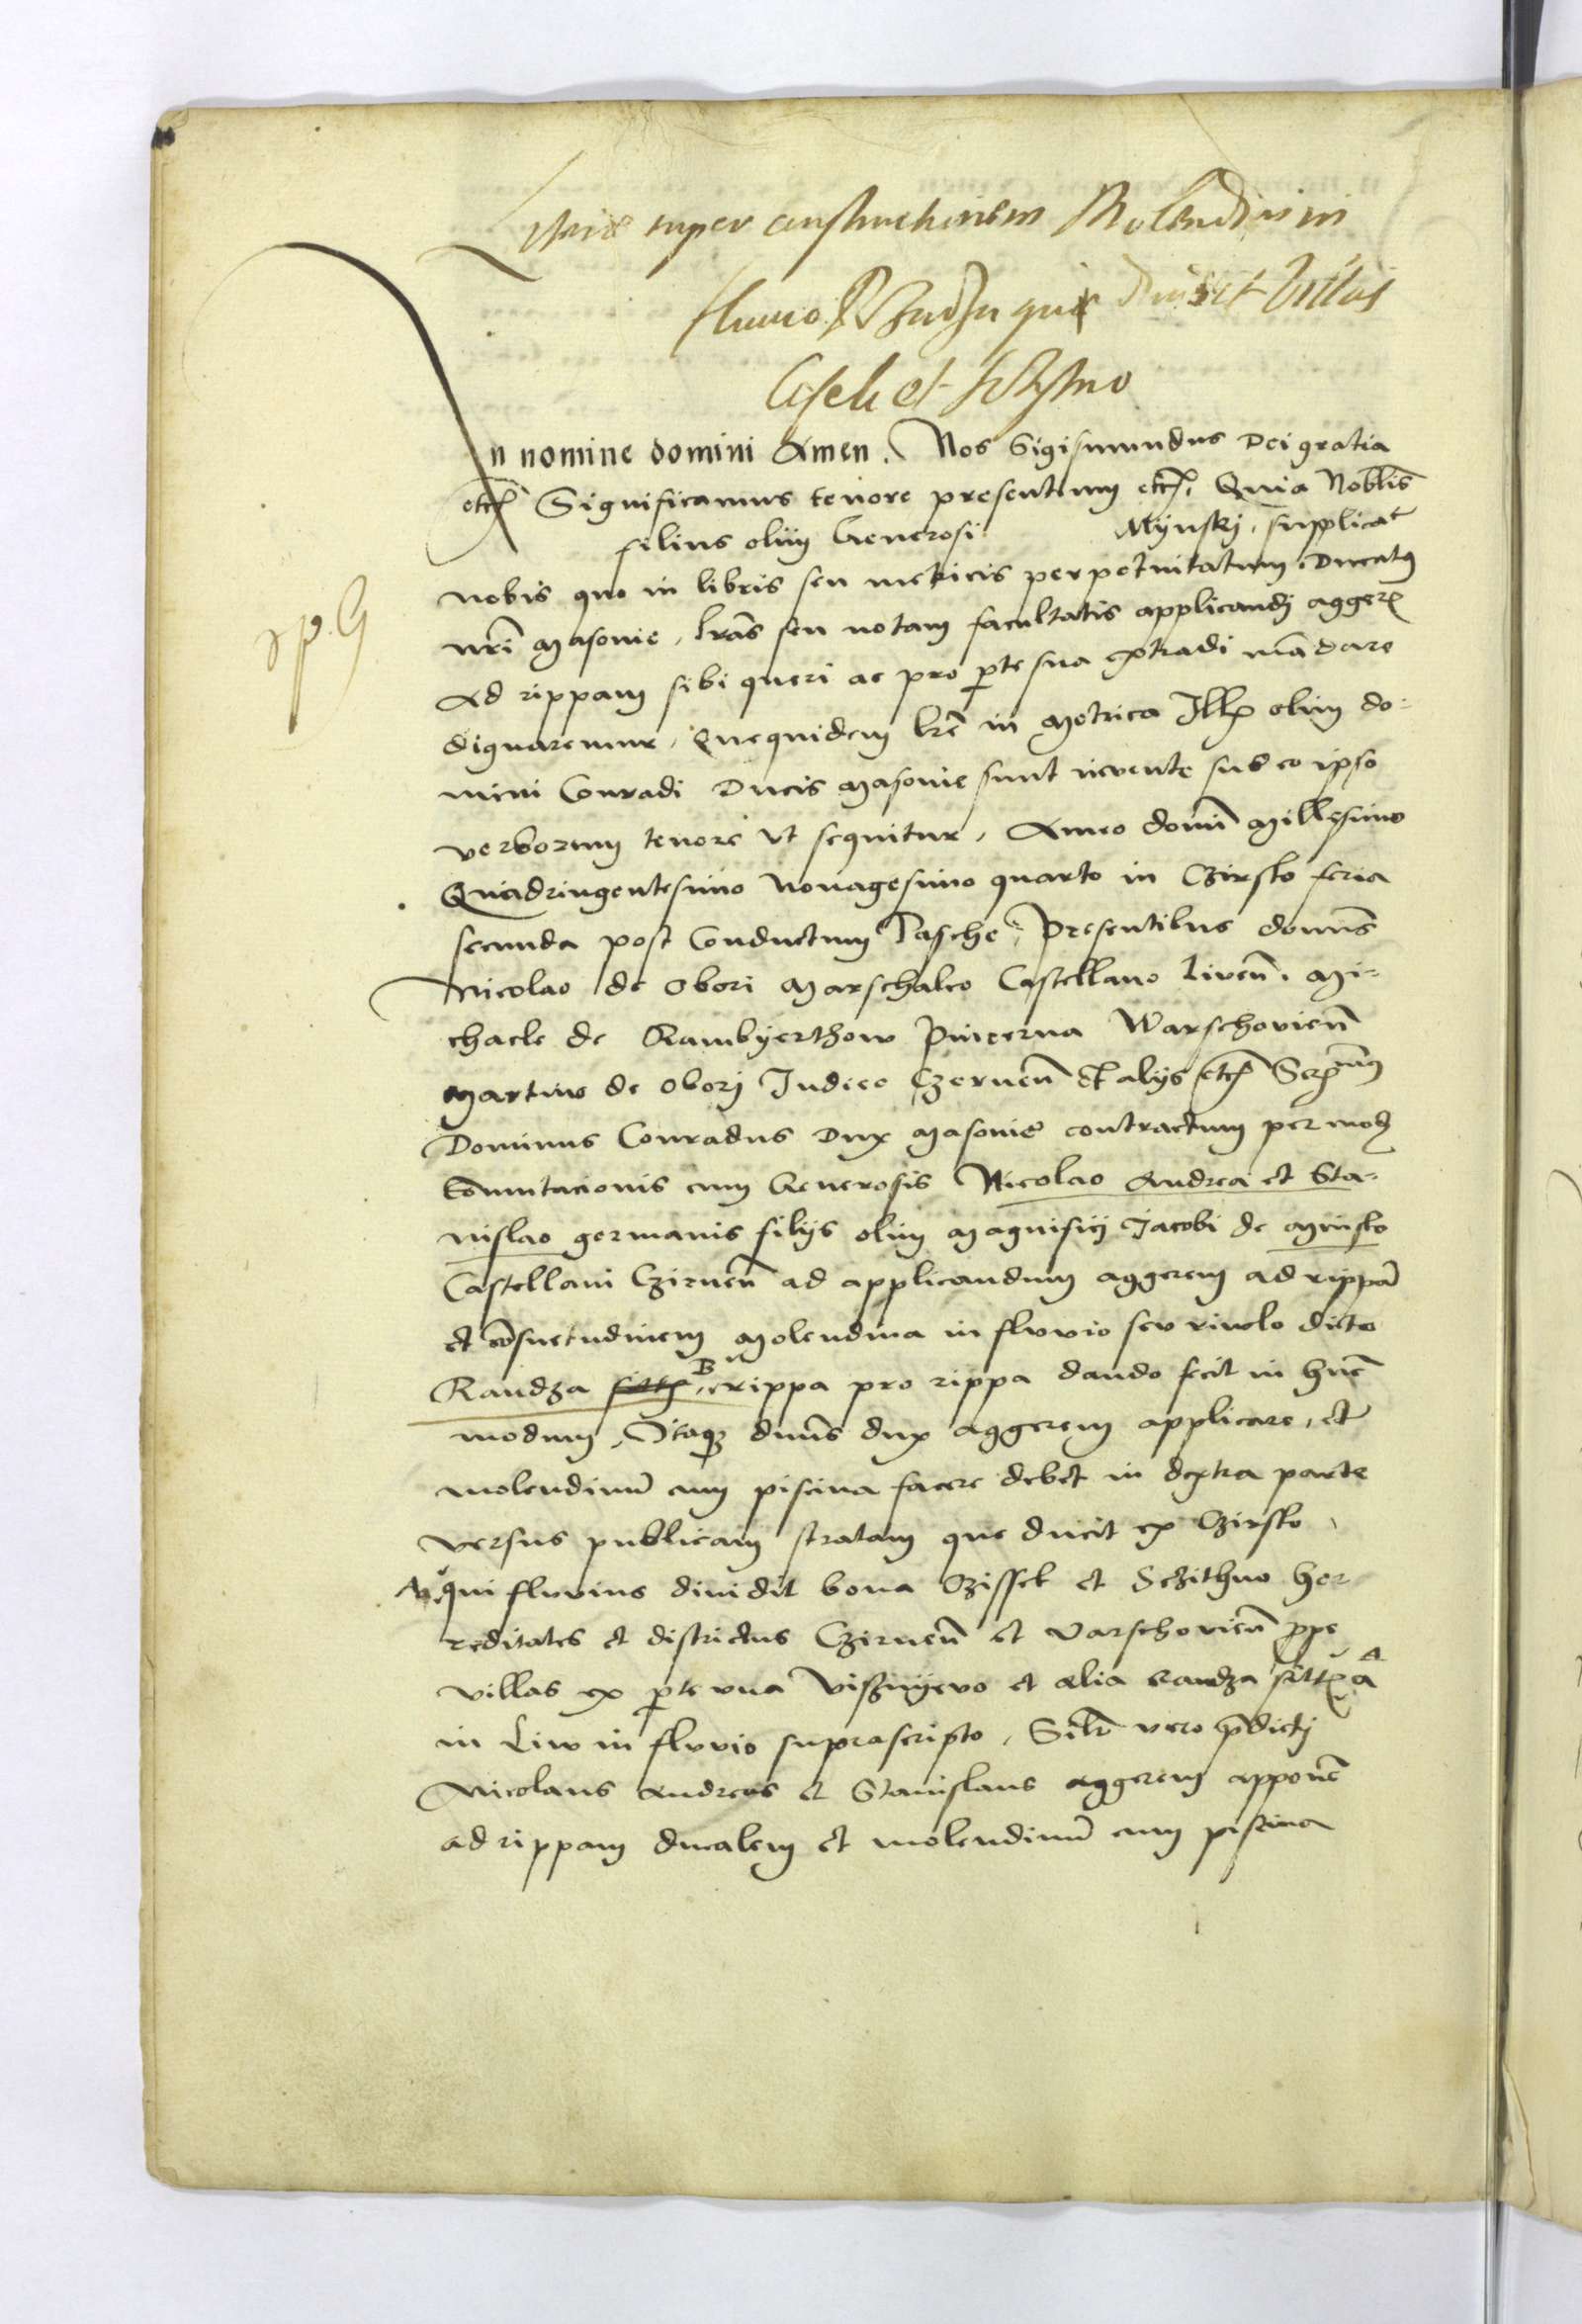 super constructionem Molendini in
fluvio Randza qui dividit villas
et
In nomine domini Amen. Nos Sigismundus Dei gratia
etc̃ Significamus tenore presentium etc̃. Quia Noblis̃
filius olim Generosi Mijnskj, supplicat
nobis quo in libris seu metricis perpetuitatum Ducatus
nr̃i Masovie, lr̃as seu notam facultatis applicandj agger
Ad rippam sibi queri ac pro p̱te sua extradi mãdare
dignaremur, Quequidem lrẽ in Metrica Ill olim do-
mini Conradi Ducis Masovie sunt invente sub eo ipso
verborum tenore ut sequitur, Anno dominĩ Millesimo
Quadringentesimo Nonagesimo quarto in Czirsko feria
secunda post Conductum Pasche, Presentibus dominis̃
Nicolao de Obori Marschalco Castellano Livenñ. Mi-
chaele de Rambyerthow Pincerna Warschovienñ
Martino de Oborj Judice Czernenñ et alijs etc̃
Dominus Conradus Dux Masovie contractum per mod
Com̃utacionis cum Generosis Nicolao Andrea et Sta-
nislao germanis filijs olim Magnificj Jacobi de Minsko
Castellani Czirnenñ ad applicandum aggerem ad rippã
et cõsuetudinem Molendina in fluvio seu rivolo dicto
Randza B rippa pro rippa dando fecit in hunc̃
modum, Itaq dnũs dux aggerem applicare, et
molendinũ cum piscina facere debet in dextra parte
versus publicam stratam que ducit ex Czirsko,
qui fluvius dividit bona Czissek et Sczithno her-
reditates et districtus Czirnenñ et Varschovienñ p̱pe
villas ex p̱te una Visznijevo et alia Randza sitt a
in Liw in fluvio suprascripto, Silr̃ vero p̃dictj
Nicolaus Andreas et Stanislaus aggerem apponẽ
ad rippam ducalem et molendinũ cum piscina